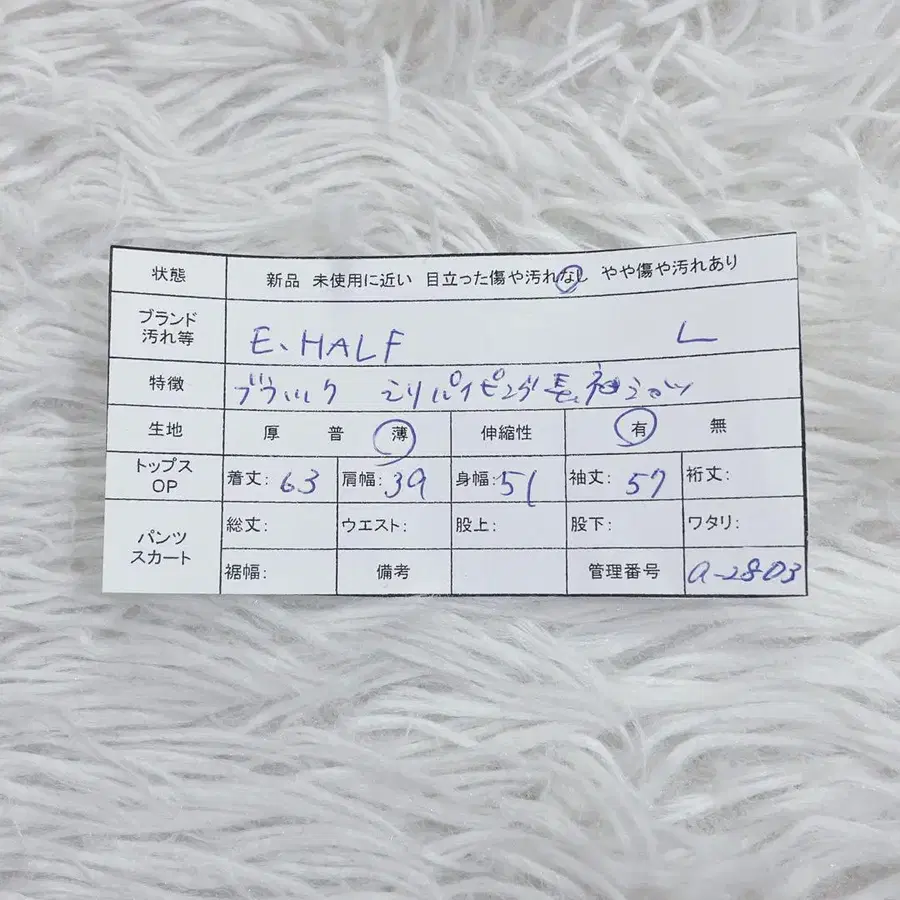 状態 新品 未使用に近い 目立った傷や汚れなし やや傷や汚れあり
ブランド
汚れ等 E.HALF L
特徴 ブラック えりパイピング長袖シャツ
生地 厚 普 薄 伸縮性 有 無
トップス
OP 着丈: 63 肩幅: 39 身幅: 51 袖丈: 57 裄丈:
パンツ
スカート 総丈: ウエスト: 股上: 股下: ワタリ:
裾幅: 備考 管理番号 a-2803